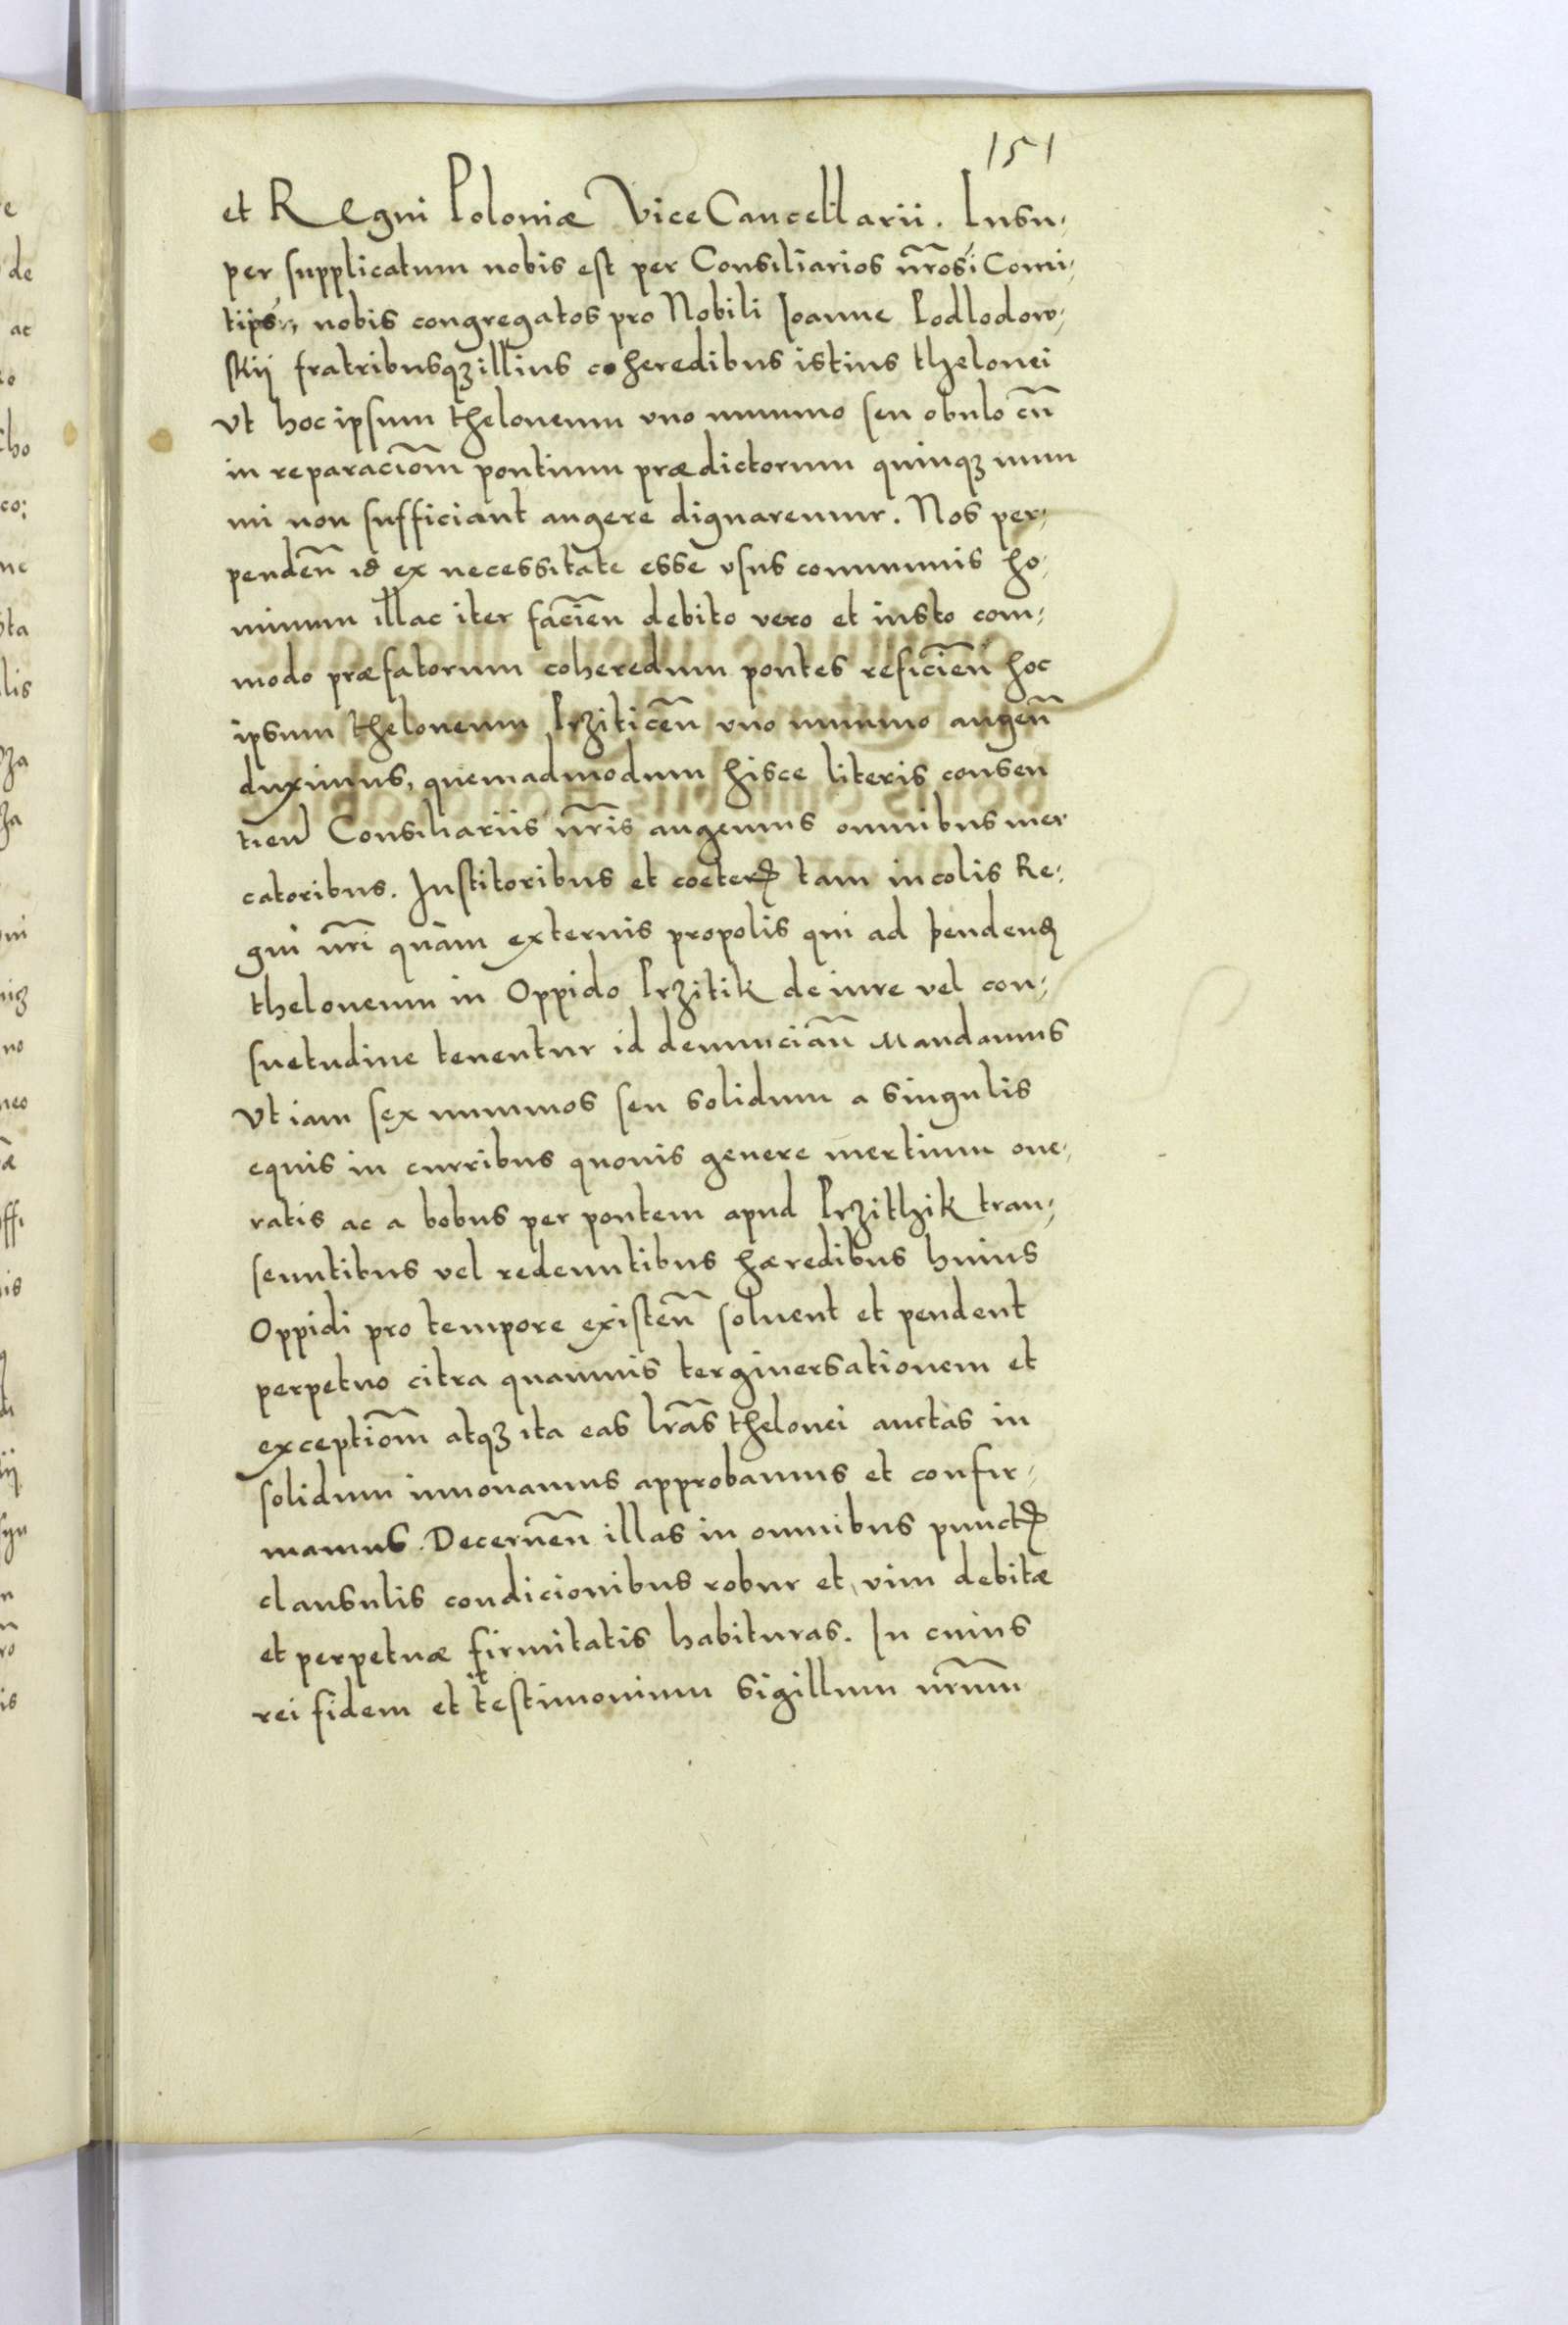 151
et REgni Poloniæ ViceCancellarii. Insu,
per supplicatum nobis est per Consiliarios nr̃os i Comi,
tiis nobis congregatos pro Nobili Joanne Podlodow,
skii fratribusqꝫ illius coheredibus istius thelonei
Vt hoc ipsum theloneum vno nummo seu obulo cũ
in reparaciõm pontium prædictorum quinqꝫ num
mi non sufficiant augere dignaremur. Nos per,
pendeñ id ex necessitate esse vsus communis ho,
minum illac iter facieñ debito vero et iusto com,
modo præfatorum coheredum pontes reficieñ hoc
ipsum theloneum Prziticeñ vno nummo augeñ
duximus, quemadmodum hisce literis consen
tieñ Consiliariis nr̃is augemus omnibus mer
catoribus. Institoribus et coeterꝭ tam incolis Re,
gni nr̃i quàm externis propolis qui ad pendenꝭ
theloneum in Oppido Przitik de iure vel con,
suetudine tenentur id denunciañ Mandamus
Vt iam sex nummos seu solidum a singulis
equis in curribus quouis genere mertium one,
ratis ac a bobus per pontem apud Przithik tran,
seuntibus vel redeuntibus hæredibus huius
Oppidi pro tempore existeñ soluent et pendent
perpetuo citra quamuis tergiuersationem et
exceptiõm atqꝫ ita eas lr̃as thelonei auctas in
solidum innouamus approbamus et confir,
mamus. Decerneñ illas in omnibus punctꝭ
clausulis condicionibus robur et vim debitæ
et perpetuæ firmitatis habituras. In cuius
rei fidem et testimonium Sigillum nr̃um